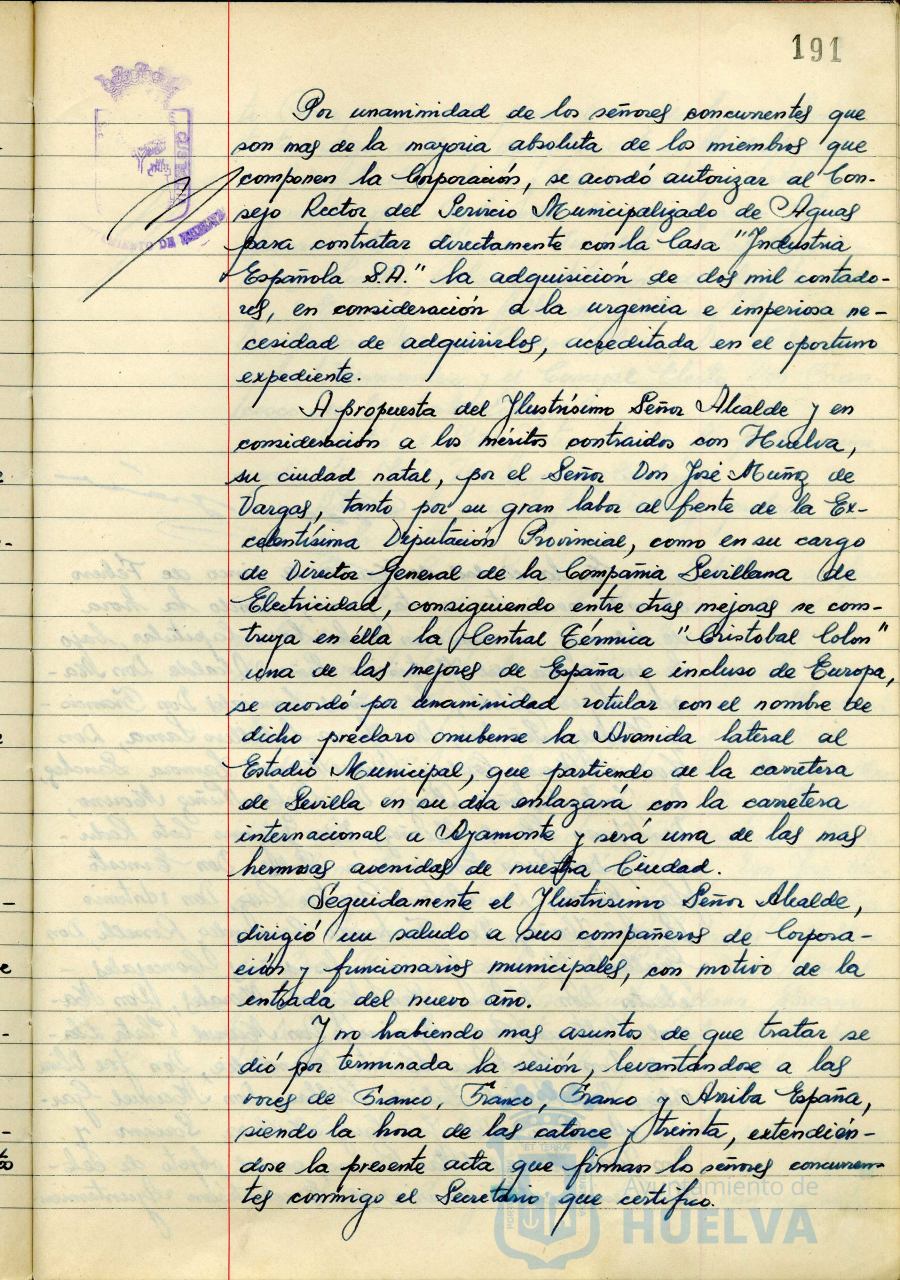 191
Por unanimidad de los señores concurrentes que
son mas de la mayoria absoluta de los miembros que
componen la Corporación, se acordó autorizar al Con-
sejo Rector del Servicio Municipalizado de Aguas
para contratar directamente con la Casa "Industria
Española S.A." la adquisición de dos mil contado-
res, en consideración a la urgencia e imperiosa ne-
cesidad de adquirirlos, acreditada en el oportuno
expediente.
A propuesta del Ilustrísimo Señor Alcalde y en
consideración a los méritos contraidos con Huelva,
su ciudad natal, por el Señor Don José Muñoz de
Vargas, tanto por su gran labor al frente de la Ex-
celentísima Diputación Provincial, como en su cargo
de Director General de la Compañia Sevillana de
Electricidad, consiguiendo entre otras mejoras se cons-
truya en élla la Central Térmica "Cristobal Colon"
una de las mejores de España e incluso de Europa,
se acordó por unanimidad rotular con el nombre de
dicho préclaro onubense la Avanida lateral al
Estadio Municipal, que partiendo de la carretera
de Sevilla en su dia enlazará con la carretera
internacional a Ayamonte y será una de las mas
hermosas avenidas de nuestra Ciudad.
Seguidamente el Ilustrisimo Señor Alcalde,
dirigió un saludo a sus compañeros de Corpora-
ción y funcionarios municipales, con motivo de la
entrada del nuevo año.
Y no habiendo mas asuntos de que tratar se
dió por terminada la sesión, levantándose a las
voces de Franco, Franco, Franco y Arriba España,
siendo la hora de las catorce y treinta, extendién-
dose la presente acta que firman los señores concurren-
tes conmigo el Secretario que certifico.
Ayuntamiento de
HUELVA